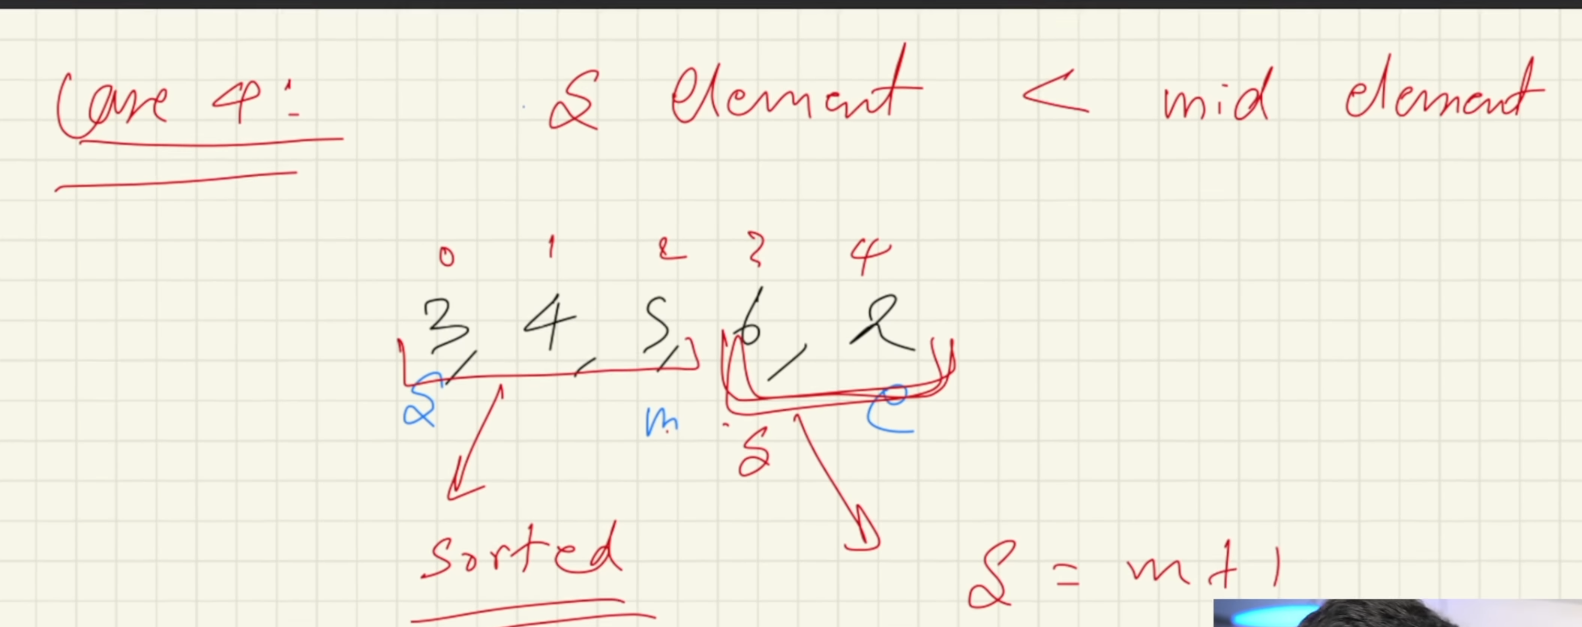 Case 4:
S element < mid element
0 1 2 3 4
3, 4, 5, 6, 2
S m e
S
sorted
S = m + 1